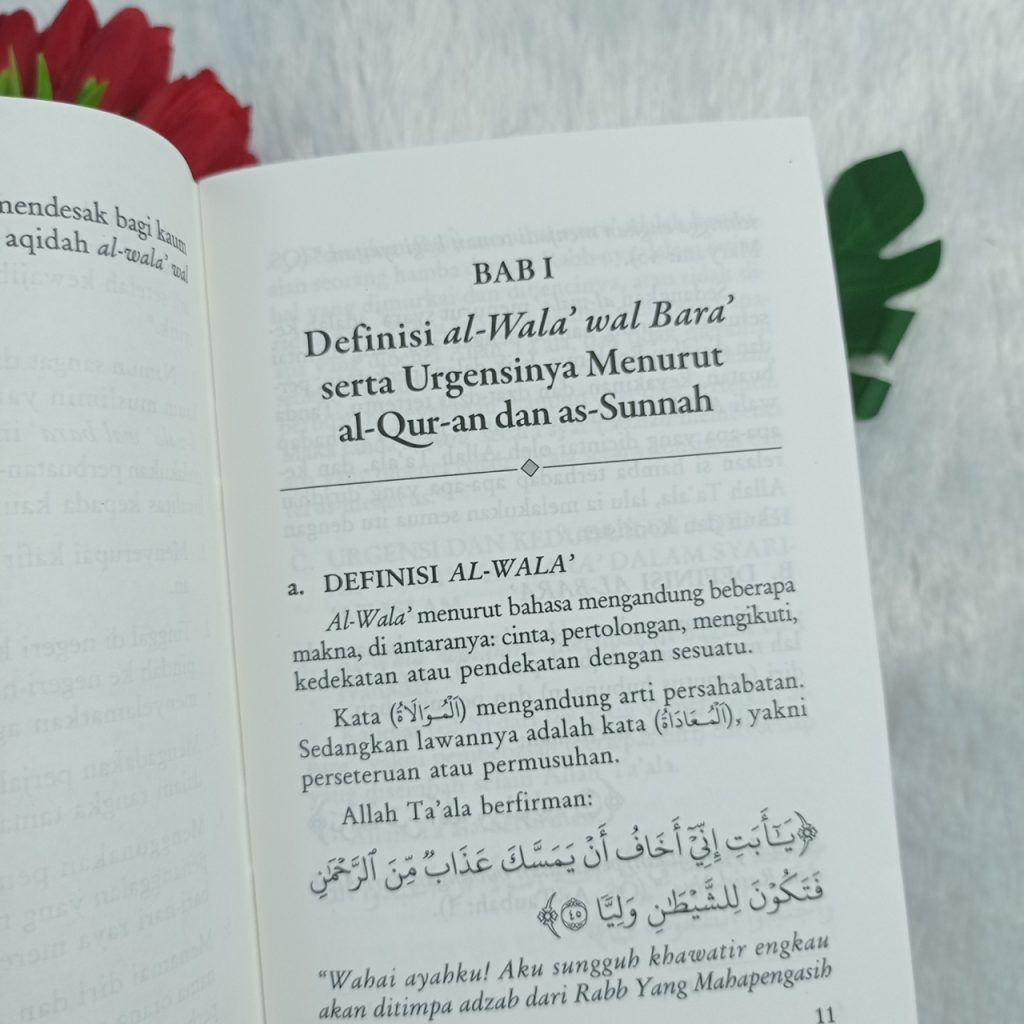 mendesak bagi kaum
aqidah al-wala' wal
BAB I
Definisi al-Wala' wal Bara'
serta Urgensinya Menurut
al-Qur-an dan as-Sunnah
a. DEFINISI AL-WALA'
Al-Wala' menurut bahasa mengandung beberapa
makna, di antaranya: cinta, pertolongan, mengikuti,
kedekatan atau pendekatan dengan sesuatu.
Kata (اَلْمُوَالَاةُ) mengandung arti persahabatan.
Sedangkan lawannya adalah kata (اَلْمُعَادَاةُ), yakni
perseteruan atau permusuhan.
Allah Ta'ala berfirman:
﴿يَـٰٓأَبَتِ إِنِّىٓ أَخَافُ أَن يَمَسَّكَ عَذَابٌ مِّنَ ٱلرَّحْمَـٰنِ
فَتَكُونَ لِلشَّيْطَـٰنِ وَلِيًّا ٤٥﴾
"Wahai ayahku! Aku sungguh khawatir engkau
akan ditimpa adzab dari Rabb Yang Mahapengasih
11